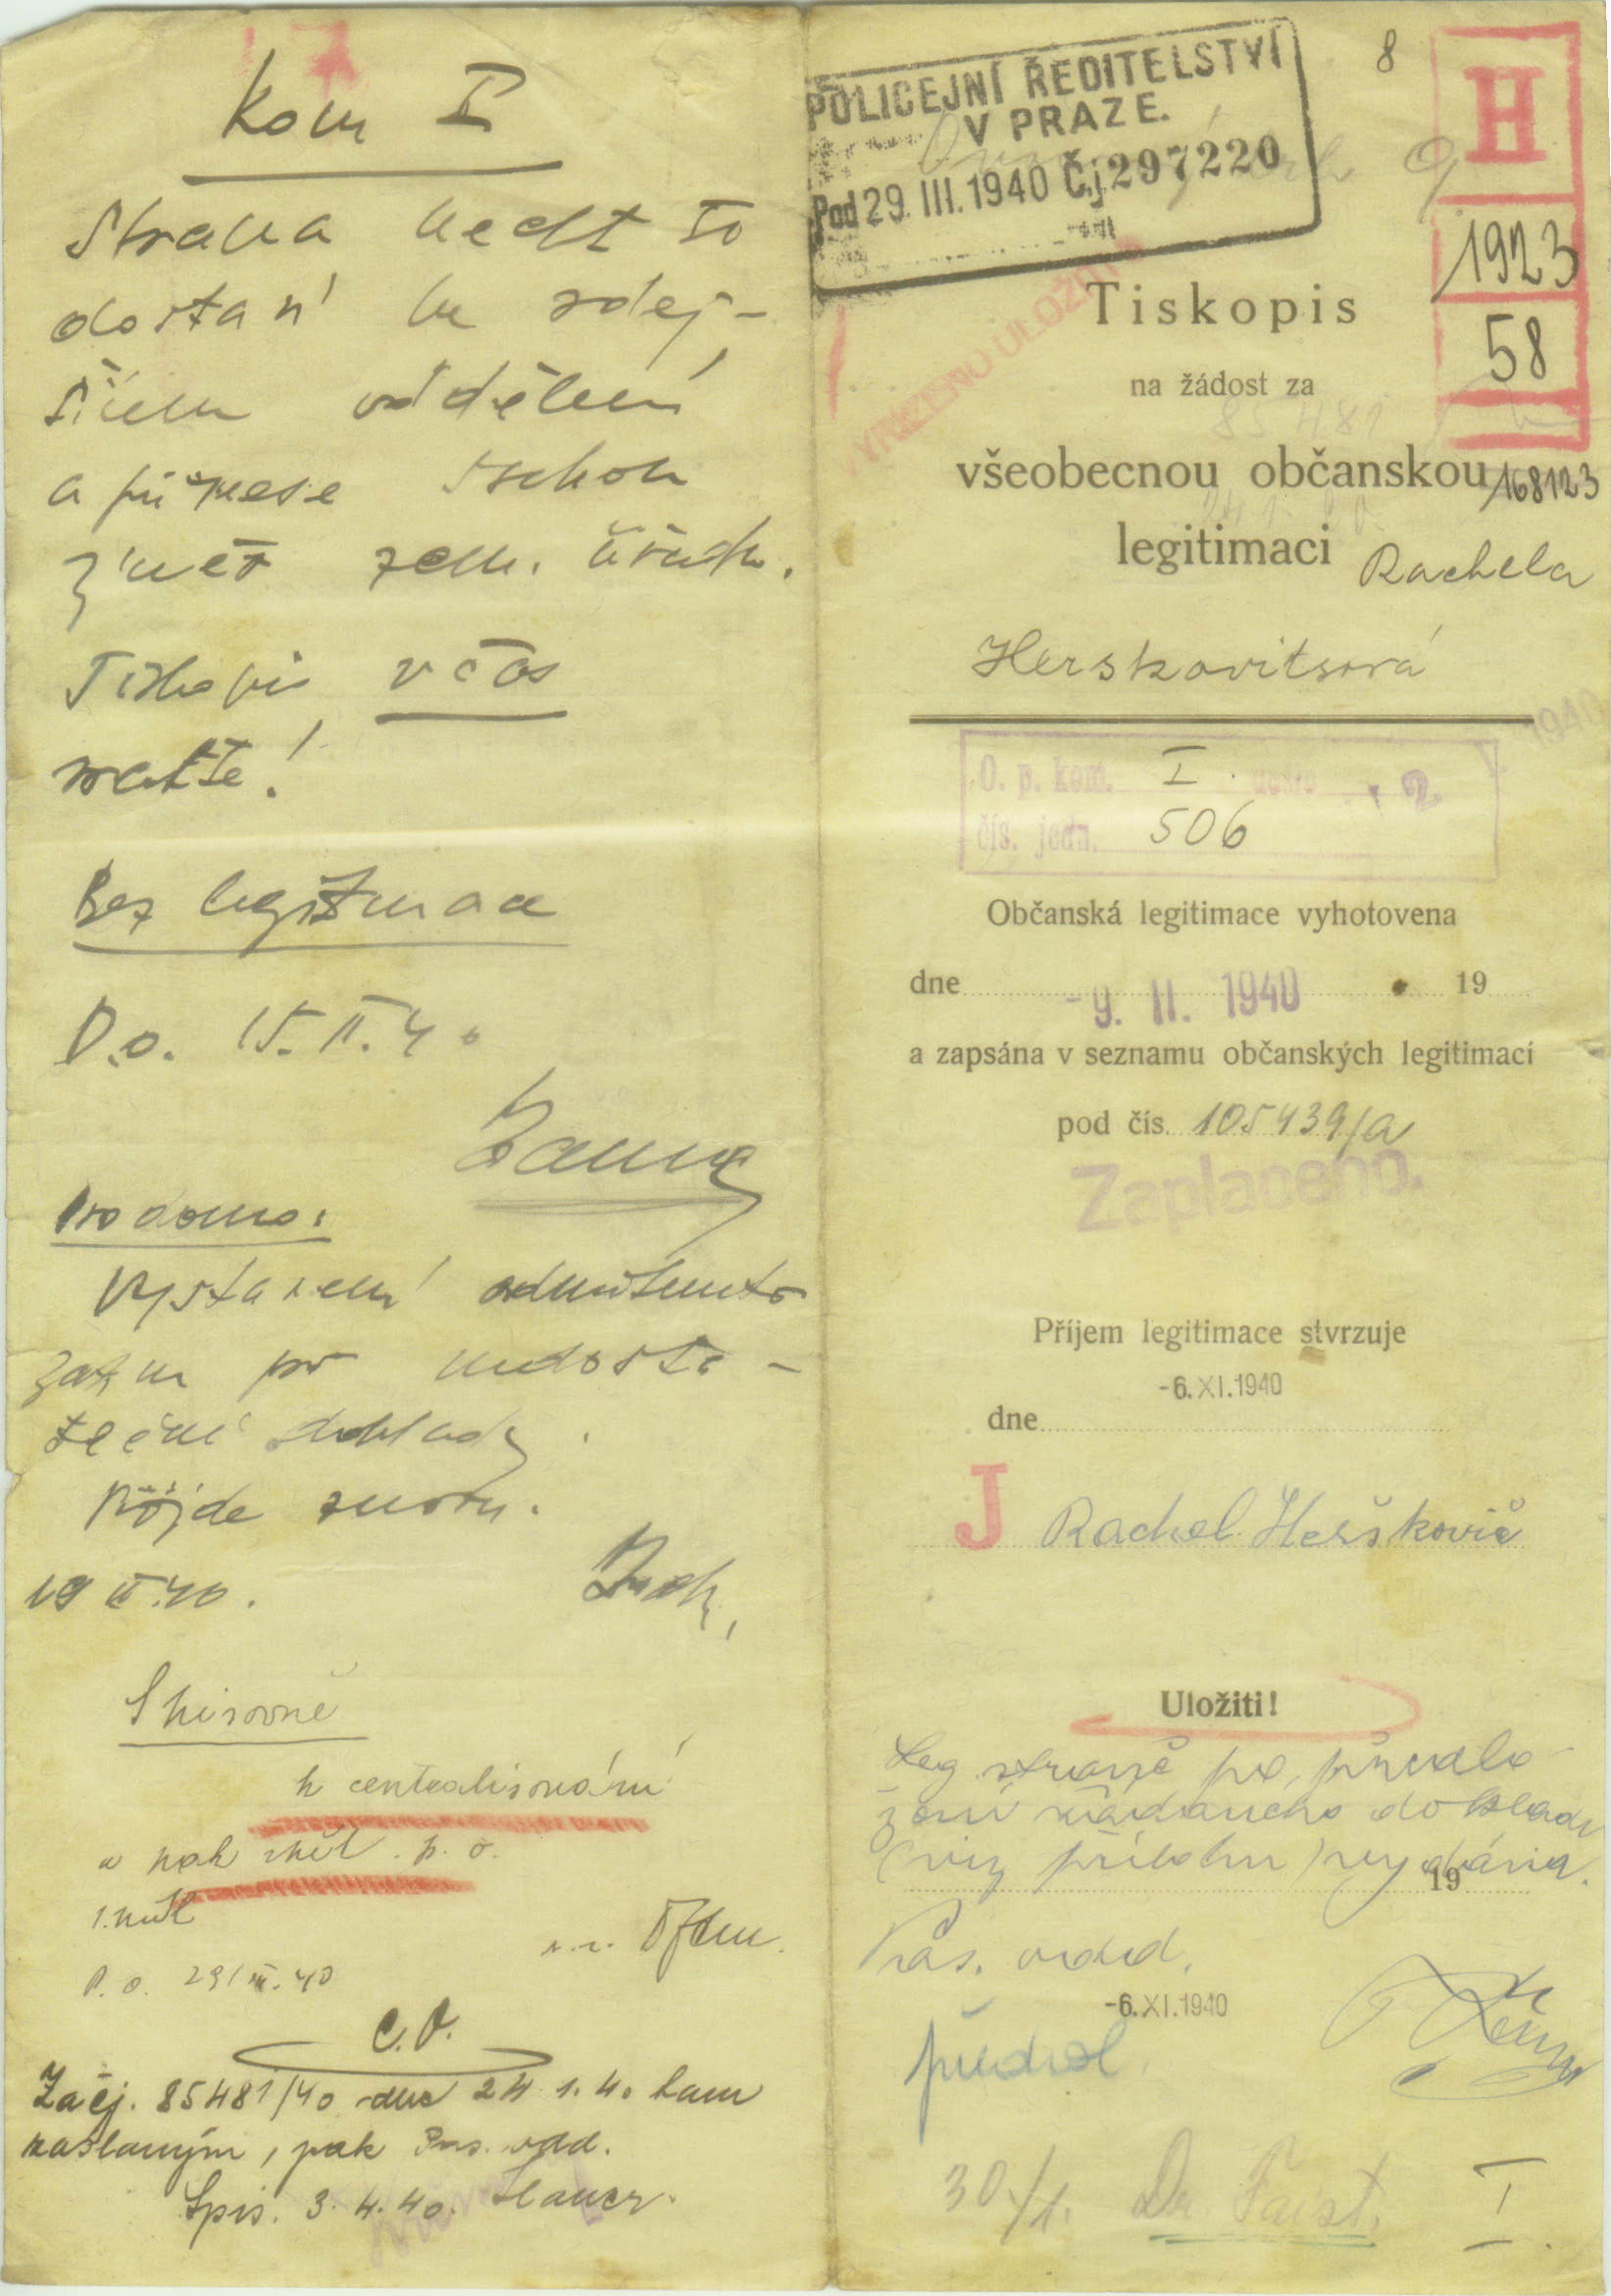 Kom I
Strana nechť se
dostaví ke zdej-
šímu oddělení
a přinese
zpět zem. úřadu.
Tiskopis včas
vraťte!
Bez legitimace
P.o. 15. II. 40
Pro domo:
Vystavení odmítnuto
pro nedosta-
tečné doklady.
Přijde znovu.
19 II. 40.
k centralisování
a pak zpět. p. o.
P. o. 29/III. 40
C.O.
Za čj. 85481/40 dne 24 1. 40 tam
zaslaným, pak Pas. odd.
Spis. 3. 4. 40.
8
POLICEJNÍ ŘEDITELSTVÍ
V PRAZE.
Pod 29. III. 1940 Čj 297220
H
1923
58
VYŘÍZENO ULOŽENO
Tiskopis
na žádost za
85 481
všeobecnou občanskou 168123
legitimaci Rachela
Herskovitsová
1940
O. p. kom. I.
čís. jedn. 506
Občanská legitimace vyhotovena
dne -9. II. 1940 19
a zapsána v seznamu občanských legitimací
pod čís. 105439/a
Zaplaceno.
Příjem legitimace stvrzuje
-6. XI. 1940
dne
J Rachel Herškovič
Uložiti!
Leg. straně po předlo-
žení žádaného dokladu
(viz přílohu) vydána.
19
Pas. odd.
-6. XI. 1940
30./1. Dr. Faist. I.